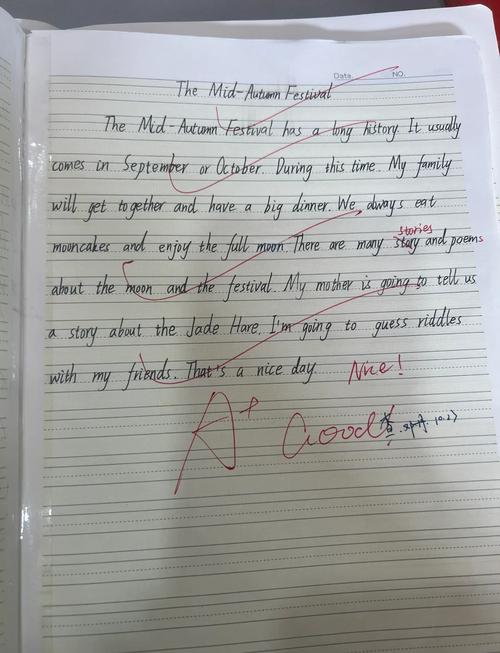 Date. NO.
The Mid-Autumn Festival
The Mid-Autumn Festival has a long history. It usually
comes in September or October. During this time. My family
will get together and have a big dinner. We always eat
stories
mooncakes and enjoy the full moon. There are many story and poems
about the moon and the festival. My mother is going to tell us
a story about the Jade Hare. I'm going to guess riddles
with my friends. That's a nice day. Nice!
A+ Good!
查